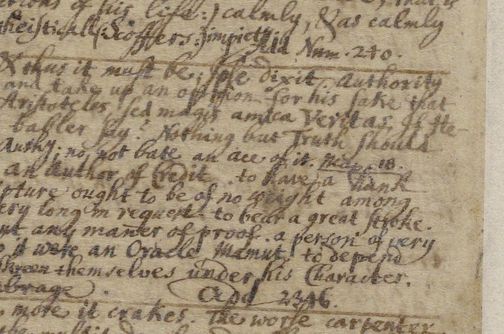 of his life:) calmly, & as calmly
theisticall (: scoffers:) impiety.
Add Num. 240.
& thus it must be, Ipse dixit. Authority
and take up an opinion for his sake that
Aristoteles, sed magis amica Veritas, if the
babler say. Nothing but Truth should
; no not bate an ace of it.
an Author of Credit. to have a Rank
pture ought to be of no weight among
ery long in request. to bear a great stroke.
any maner of proof. a person of very
it were an Oracle. to depend
themselves under his Character.
brage. Add 2346.
more it crakes. The worse carpenter